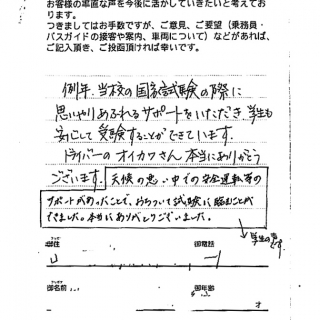 お客様の率直な声を今後に活かしていきたいと考えて
おります。
つきましてはお手数ですが、ご意見、ご要望（乗務員・
バスガイドの接客や案内、車両について）などがあれば、
ご記入頂き、ご投函頂ければ幸いです。
例年、当校の国家試験の際に
思いやりあふれるサポートをいただき、学生も
安心して受験することができています。
ドライバーのオイカワさん本当にありがとう
ございます。天候の悪い中での安全運転等の
サポートがあったことで、おちついて試験に臨むことが
できました。本当にありがとうございました。
学生の声です。
御住
御電話
御名前
御年齢
才